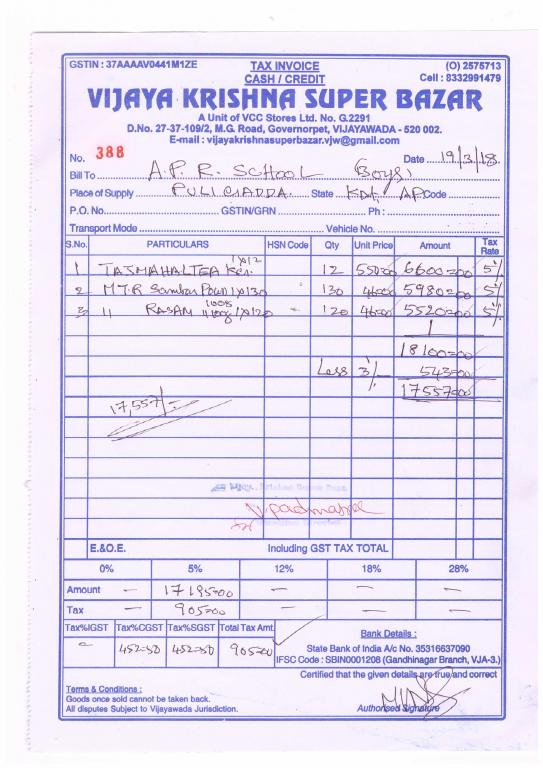 GSTIN : 37AAAAV0441M1ZE TAX INVOICE (O) 2575713
CASH / CREDIT Cell : 8332991479
VIJAYA KRISHNA SUPER BAZAR
A Unit of VCC Stores Ltd. No. G.2291
D.No. 27-37-109/2, M.G. Road, Governorpet, VIJAYAWADA - 520 002.
E-mail : vijayakrishnasuperbazar.vjw@gmail.com
No. 388 Date 19/3/18
Bill To A.P.R. SCHOOL Boys
Place of Supply PULIGADDA State AP Code
P.O. No. GSTIN/GRN Ph :
Transport Mode Vehicle No.
S.No. PARTICULARS HSN Code Qty Unit Price Amount Tax Rate
1 TAJMAHAL TEA 1x12 12 550=00 6600=00 5%
2 MTR Sambar Powd 1x130 130 46=00 5980=00 5%
3 11 RASAM 100g 1x120 - 120 46=00 5520=00 5%
18100=00
Less 3% 543=00
17557=00
17,557/-
E.&O.E. Including GST TAX TOTAL
0% 5% 12% 18% 28%
Amount - 17195=00 - - -
Tax - 905=00 - - -
Tax%IGST Tax%CGST Tax%SGST Total Tax Amt. Bank Details :
- 452=50 452=50 905=00 State Bank of India A/c No. 35316637090
IFSC Code : SBIN0001208 (Gandhinagar Branch, VJA-3.)
Certified that the given details are true and correct
Terms & Conditions :
Goods once sold cannot be taken back.
All disputes Subject to Vijayawada Jurisdiction. Authorised Signature